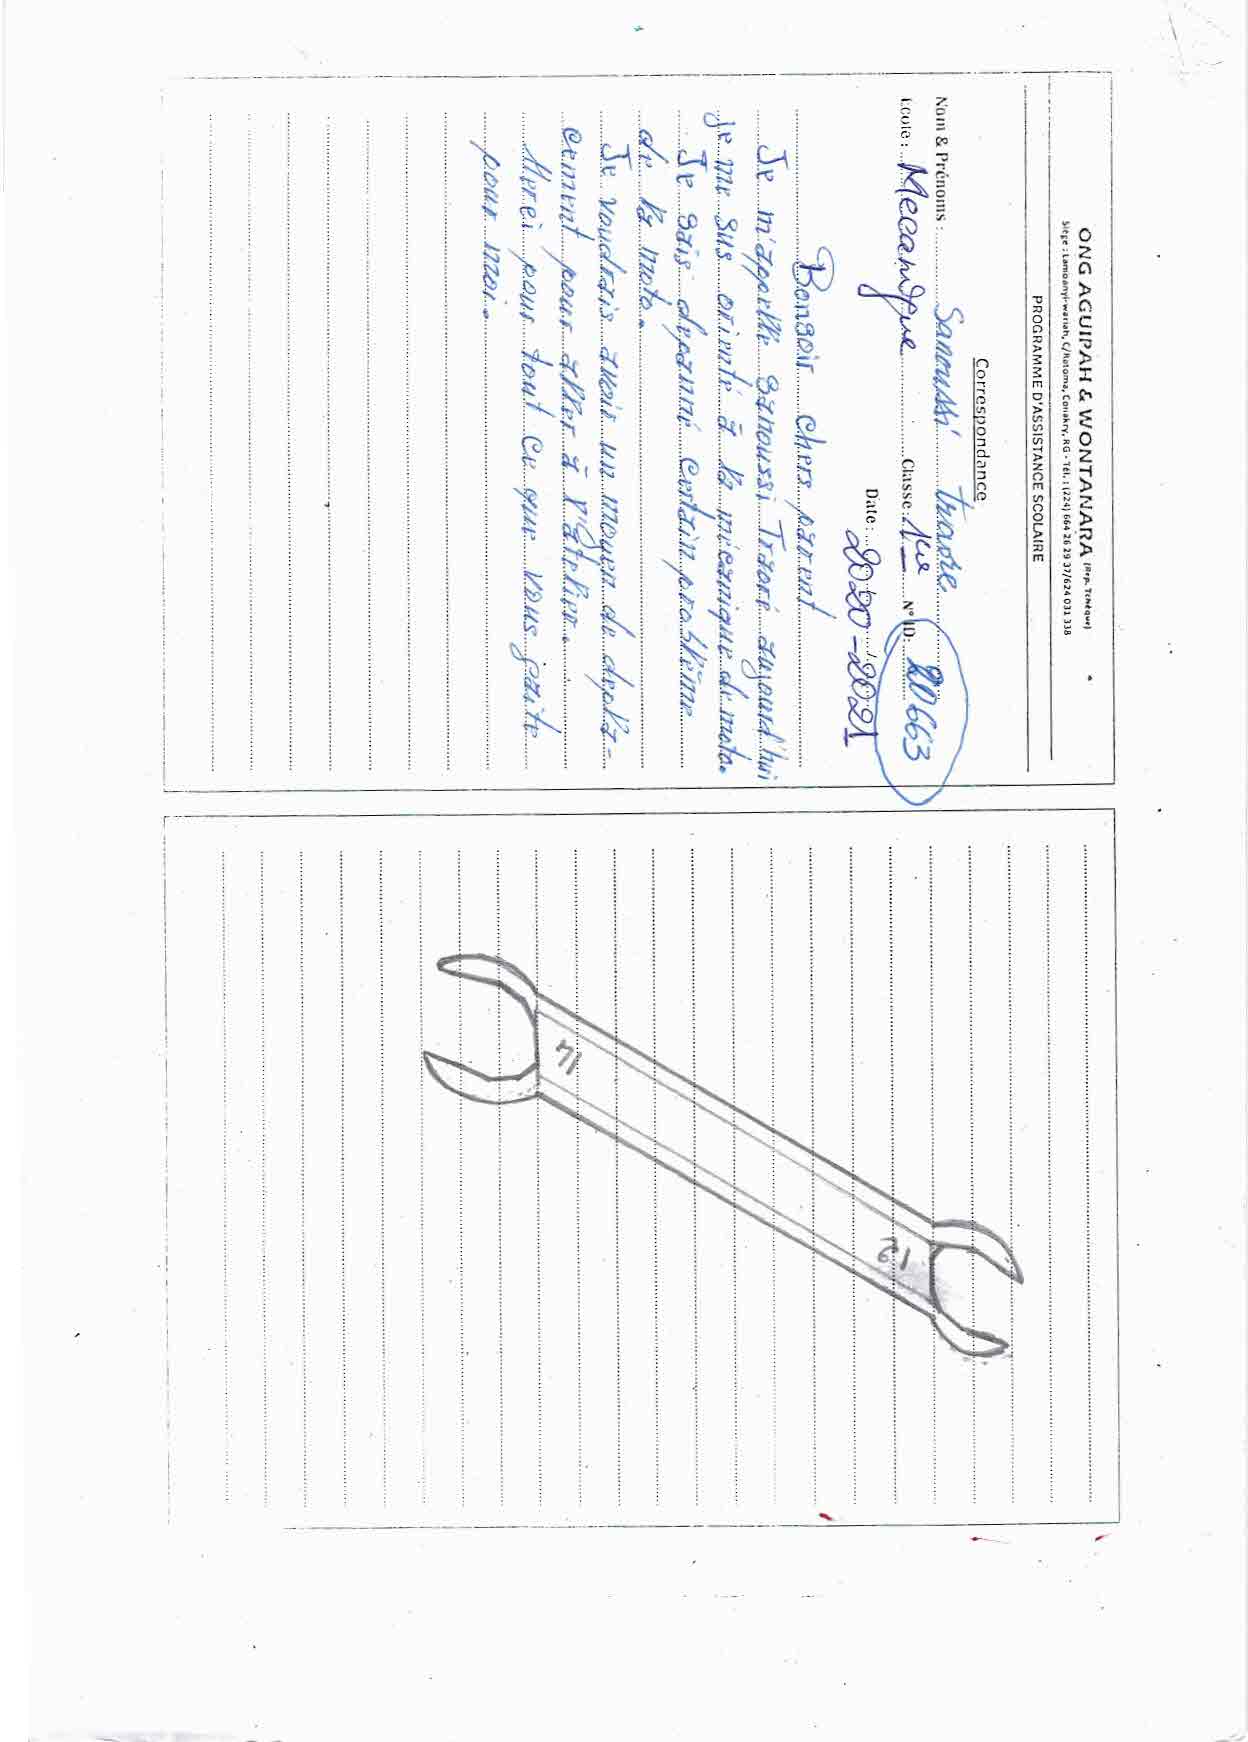 ONG AGUIPAH & WONTANARA (Rep. Tchèque)
Siège : Lambanyi-wariah, C/Ratoma, Conakry, RG - Tél. : (224) 664 26 29 37/624 031 338
PROGRAMME D'ASSISTANCE SCOLAIRE
Correspondance
Nom & Prénoms : Sanoussi traore
Ecole : Mecanique Classe : 1ère N° ID: 20663
Date : 2020-2021
Bonsoir chers parent
Je m'appelle Sanoussi Traoré aujourd'hui
je me sus orienté à la mécanique de moto.
Je sais depanné certain problème
de la moto.
Je voudrais avoir un moyen de depla-
cement pour aller à l'atelier.
Merci pour tout ce que vous faite
pour moi.
14
12